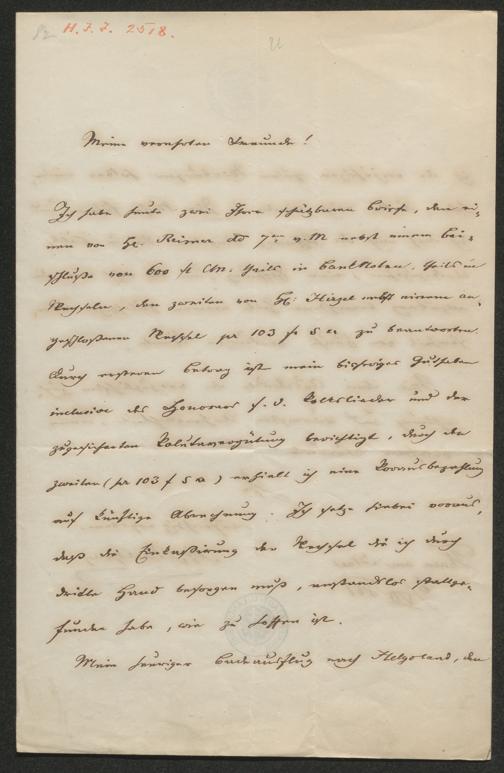 82 H. I. I. 2518.
Meine verehrten Freunde!
Ich habe heute zwei Ihrer schätzbaren Briefe, den ei-
nen von H. Reimer dto 7ten v. M nebst einem Bei-
schluße von 600 fl CM. theils in Banknoten, theils in
Wechseln, den zweiten von H. Hirzel nebst einem an-
geschloßenen Wechsel pr 103 f 5 x zu beantworten.
Durch ersteren Betrag ist mein bisheriges Guthaben
inclusive des Honorars f. d. Volkslieder und der
zugesicherten Valutavergütung berichtigt, durch den
zweiten (pr 103 f 5 x) erhielt ich eine Vorausbezahlung
auf künftige Abrechnung. Ich setze hiebei voraus,
daß die Einkassirung der Wechsel die ich durch
dritte Hand besorgen muß, anstandslos stattge-
funden habe, wie zu hoffen ist.
Mein heuriger Badeausflug nach Helgoland, den